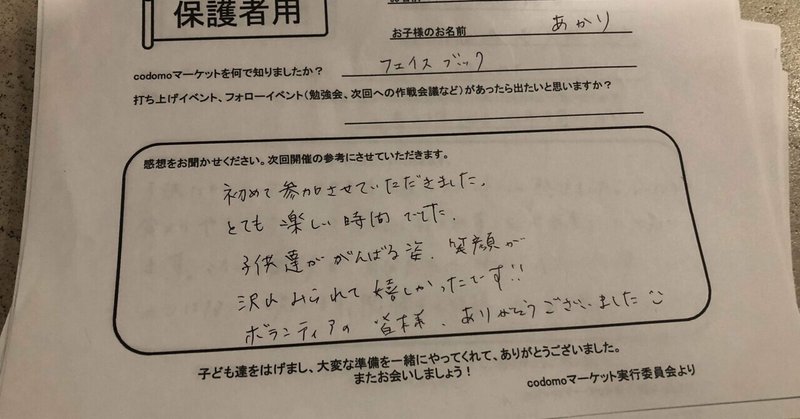 保護者用
お子様のお名前 あかり
codomoマーケットを何で知りましたか？ フェイスブック
打ち上げイベント、フォローイベント（勉強会、次回への作戦会議など）があったら出たいと思いますか？
感想をお聞かせください。次回開催の参考にさせていただきます。
初めて参加させていただきました。
とても楽しい時間でした。
子供達ががんばる姿、笑顔が
沢山みられて嬉しかったです!!
ボランティアの皆様、ありがとうございました
子ども達をはげまし、大変な準備を一緒にやってくれて、ありがとうございました。
またお会いしましょう！
codomoマーケット実行委員会より